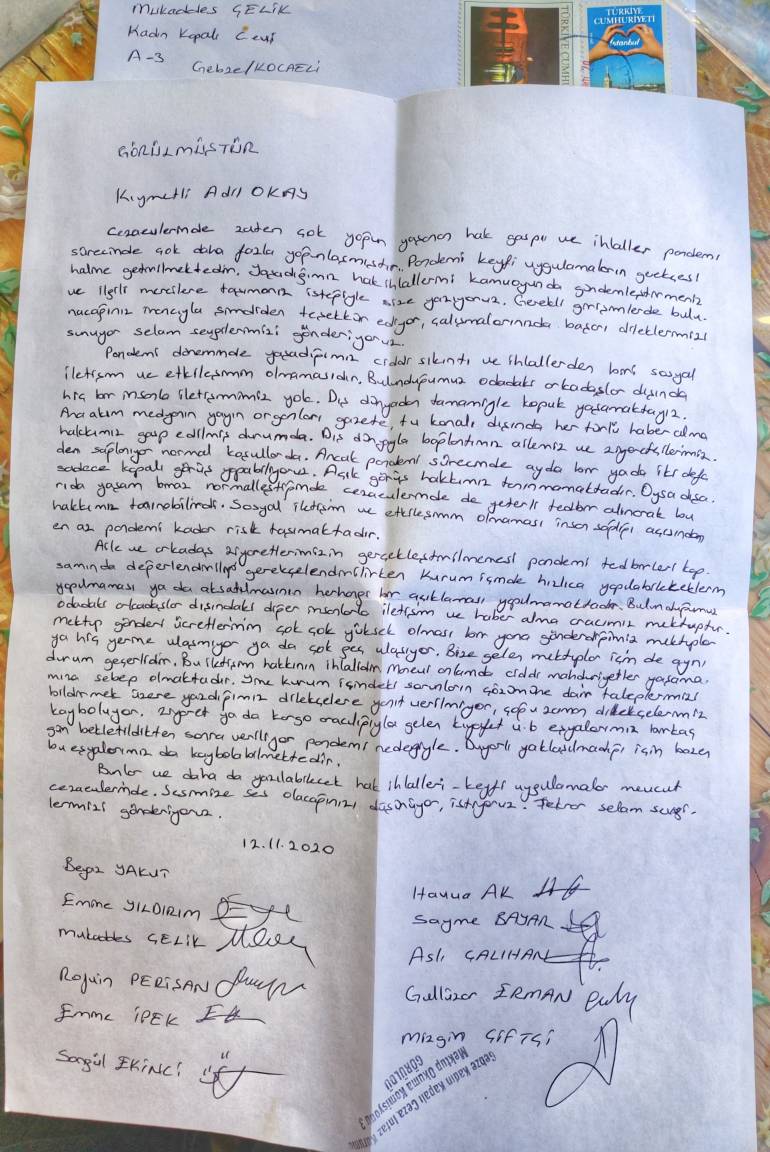 Mukaddes ÇELİK
Kadın Kapalı Cevi
A-3
Gebze/KOCAELİ
TÜRKİYE CUMH
TÜRKİYE
CUMHURİYETİ
İstanbul
GÖRÜLMÜŞTÜR
Kıymetli Adil OKAY
Cezaevlerinde zaten çok yoğun yaşanan hak gaspı ve ihlaller pandemi
sürecinde çok daha fazla yoğunlaşmıştır. Pandemi keyfi uygulamaların gerekçesi
haline getirilmektedir. Yaşadığımız hak ihlallerini kamuoyunda gündemleştirmeniz
ve ilgili mercilere taşımanız isteğiyle size yazıyoruz. Gerekli girişimlerde bulu-
nacağınız inancıyla şimdiden teşekkür ediyor, çalışmalarınızda başarı dileklerimizi
sunuyor selam sevgilerimizi gönderiyoruz.
Pandemi döneminde yaşadığımız ciddi sıkıntı ve ihlallerden biri sosyal
iletişim ve etkileşimin olmamasıdır. Bulunduğumuz odadaki arkadaşlar dışında
hiç bir insanla iletişimimiz yok. Dış dünyadan tamamıyla kopuk yaşamaktayız.
Ana akım medyanın yayın organları gazete, tv kanalı dışında her türlü haber alma
hakkımız gasp edilmiş durumda. Dış dünyayla bağlantımız ailemiz ve ziyaretçilerimiz-
den sağlanıyor normal koşullarda. Ancak pandemi sürecinde ayda bir yada iki defa
sadece kapalı görüş yapabiliyoruz. Açık görüş hakkımız tanınmamaktadır. Oysa dışa-
rıda yaşam biraz normalleştiğinde cezaevlerinde de yeterli tedbir alınarak bu
hakkımız tanınabilirdi. Sosyal iletişim ve etkileşimin olmaması insan sağlığı açısından
en az pandemi kadar risk taşımaktadır.
Aile ve arkadaş ziyaretlerimizin gerçekleştirilmemesi pandemi tedbirleri kap-
samında değerlendirilip gerekçelendirilirken kurum içinde hızlıca yapılabileceklerin
yapılmaması ya da aksatılmasının herhangi bir açıklaması yapılmamaktadır. Bulunduğumuz
odadaki arkadaşlar dışındaki diğer insanlarla iletişim ve haber alma aracımız mektuptur.
mektup gönderi ücretlerinin çok çok yüksek olması bir yana gönderdiğimiz mektuplar
ya hiç yerine ulaşmıyor ya da çok geç ulaşıyor. Bize gelen mektuplar için de aynı
durum geçerlidir. Bu iletişim hakkının ihlalidir. Mevcut anlamda ciddi mahduriyetler yaşama-
mıza sebep olmaktadır. Yine kurum içindeki sorunların çözümüne dair taleplerimizi
bildirmek üzere yazdığımız dilekçelere yanıt verilmiyor, çoğu zaman dilekçelerimiz
kayboluyor. Ziyaret ya da kargo aracılığıyla gelen kıyafet v.b eşyalarımız birkaç
gün bekletildikten sonra veriliyor pandemi nedeniyle. Duyarlı yaklaşılmadığı için bazen
bu eşyalarımız da kaybolabilmektedir.
Bunlar ve daha da yazılabilecek hak ihlalleri - keyfi uygulamalar mevcut
cezaevlerinde. Sesimize ses olacağınızı düşünüyor, istiyoruz. Tekrar selam sevgi-
lerimizi gönderiyoruz.
12.11.2020
Beyaz YAKUT
Emine YILDIRIM
Mukaddes ÇELİK
Rojin PERİŞAN
Emine İPEK
Songül EKİNCİ
Havva AK
Sayme BAYAR
Aslı ÇALIHAN
Gullüzar ERMAN
Mizgin ÇİFTÇİ
Gebze Kadın Kapalı Ceza İnfaz Kurumu
Mektup Okuma Komisyonu 3
GÖRÜLDÜ